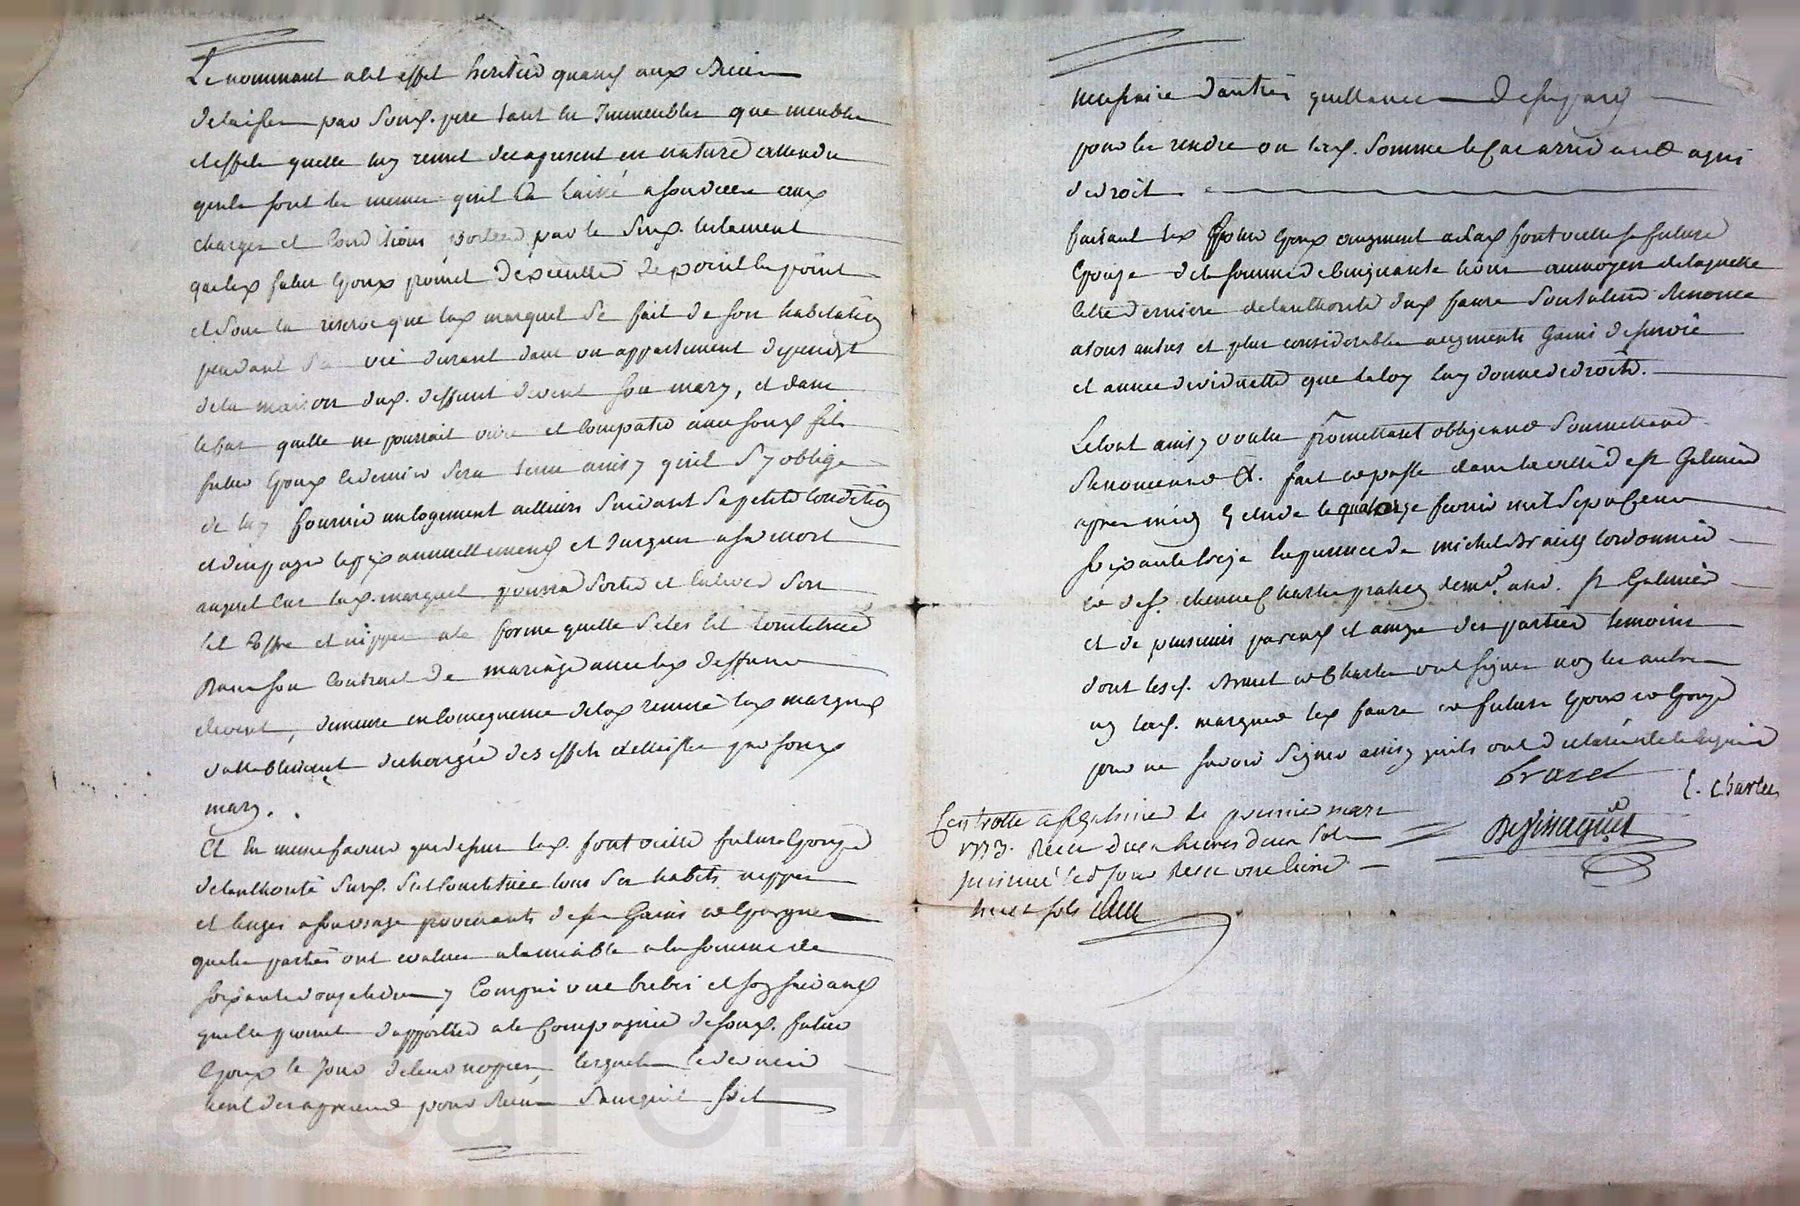 Le nommant a cet effet heritier quand aux Biens
delaissés par Sond. pere tant les Immeubles que meubles
et effets quelle luy remet des apresent en nature attendu
quils sont les memes quil a laissé a son deces aux
charges et Conditions portées par le Susd. testament
que led. futur Epoux promet d'executter de point en point
et sous la reserve que lad. marguet se fait de son habitation
pendant sa vie durant dans un appartement dependant
de la maison dud. deffunt devent son mary, et dans
le cas quelle ne pourrait vivre et Compatir avec sond. fils
futur Epoux ce dernier sera tenu ainsy quil s'y oblige
de luy fournir un logement ailleurs suivant sa petite Condition
et d'en payer le prix annuellement et jusques a sa mort
auquel cas lad. marguet pourra sortir et enlever son
lit Coffre et nippes a la forme quelle se les est Constitués
Dans son Contract de mariage avec led. deffunt
devent, demeure en Consequence de lad. remise lad. marguet
vallablement dechargée des effets delaissés par sond.
mary.
Et En meme faveur que dessus lad. fontvieille future Epouse
de l'authorité Susd. Sest Constituée tous Ses habits nippes
et linges a son usage provenants de ses Gains et Epargnes
que les parties ont evalués a lamiable a la somme de
soixante douze livres y Compris une brebis et son suivant
quelle promet d'apporter a la Compagnie de sond. futur
Epoux le jour de leurs noces, lesquels ce dernier
tient des apresent pour reçus sans quil soit
necessaire d'autres quittances des apresent
pour les rendre ou lad. Somme le Cas arrivant a qui
de droit.
faisant led. futur Epoux augment a lad. fontvieille sa future
Epouse de la somme de Cinquante livres au moyen de laquelle
cette derniere de l'authorité dud. faure Son tuteur Renonce
a tous autres et plus considerables augments Gains de survie
et année de viduité que la loy luy donne de droit.
Le tout ainsy voulu promettant obligeant Soumettant
Renonceant &. fait et passé dans la ville de st Galmier
apres midy Etude le quatorze fevrier mil Sept Cents
soixante treize En presence de michel Brazet Cordonnier
et de s. etienne Charles praticien demt. aud. st Galmier
et de plusieurs parents et amys des parties temoins
dont lesd. Brazet et Charles ont signés non les autres
ny lad. marguet led. faure et futurs Epoux et Epouse
pour ne savoir Signer ainsy quils ont declaré de ce Enquis
brazet
E. Charles
Controllé a st Galmier le premier mars
1773. Recu deux livres deux Sols
Insinué led. jour Recu une livre
huit sols